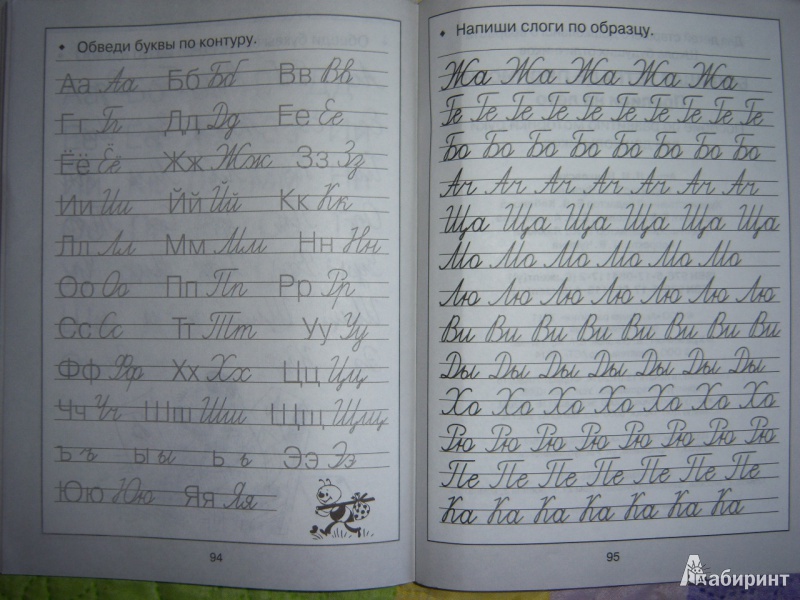 Обведи буквы по контуру.
Аа Аа Бб Бб Вв Вв
Гг Гг Дд Дд Ее Ее
Ёё Ёё Жж Жж Зз Зз
Ии Ии Йй Йй Кк Кк
Лл Лл Мм Мм Нн Нн
Оо Оо Пп Пп Рр Рр
Сс Сс Тт Тт Уу Уу
Фф Фф Хх Хх Цц Цц
Чч Чч Шш Шш Щщ Щщ
Ъ ъ Ы ы Ь ь Ээ Ээ
Юю Юю Яя Яя
94
Напиши слоги по образцу.
Жа Жа Жа Жа Жа
Ге Ге Ге Ге Ге Ге Ге Ге
Бо Бо Бо Бо Бо Бо Бо Бо
Ач Ач Ач Ач Ач Ач Ач
Ща Ща Ща Ща Ща Ща
Мо Мо Мо Мо Мо Мо
Лю Лю Лю Лю Лю Лю Лю
Ви Ви Ви Ви Ви Ви Ви Ви
Ды Ды Ды Ды Ды Ды Ды
Хо Хо Хо Хо Хо Хо Хо
Рю Рю Рю Рю Рю Рю Рю Рю
Пе Пе Пе Пе Пе Пе Пе
Ка Ка Ка Ка Ка Ка Ка
95
Лабиринт